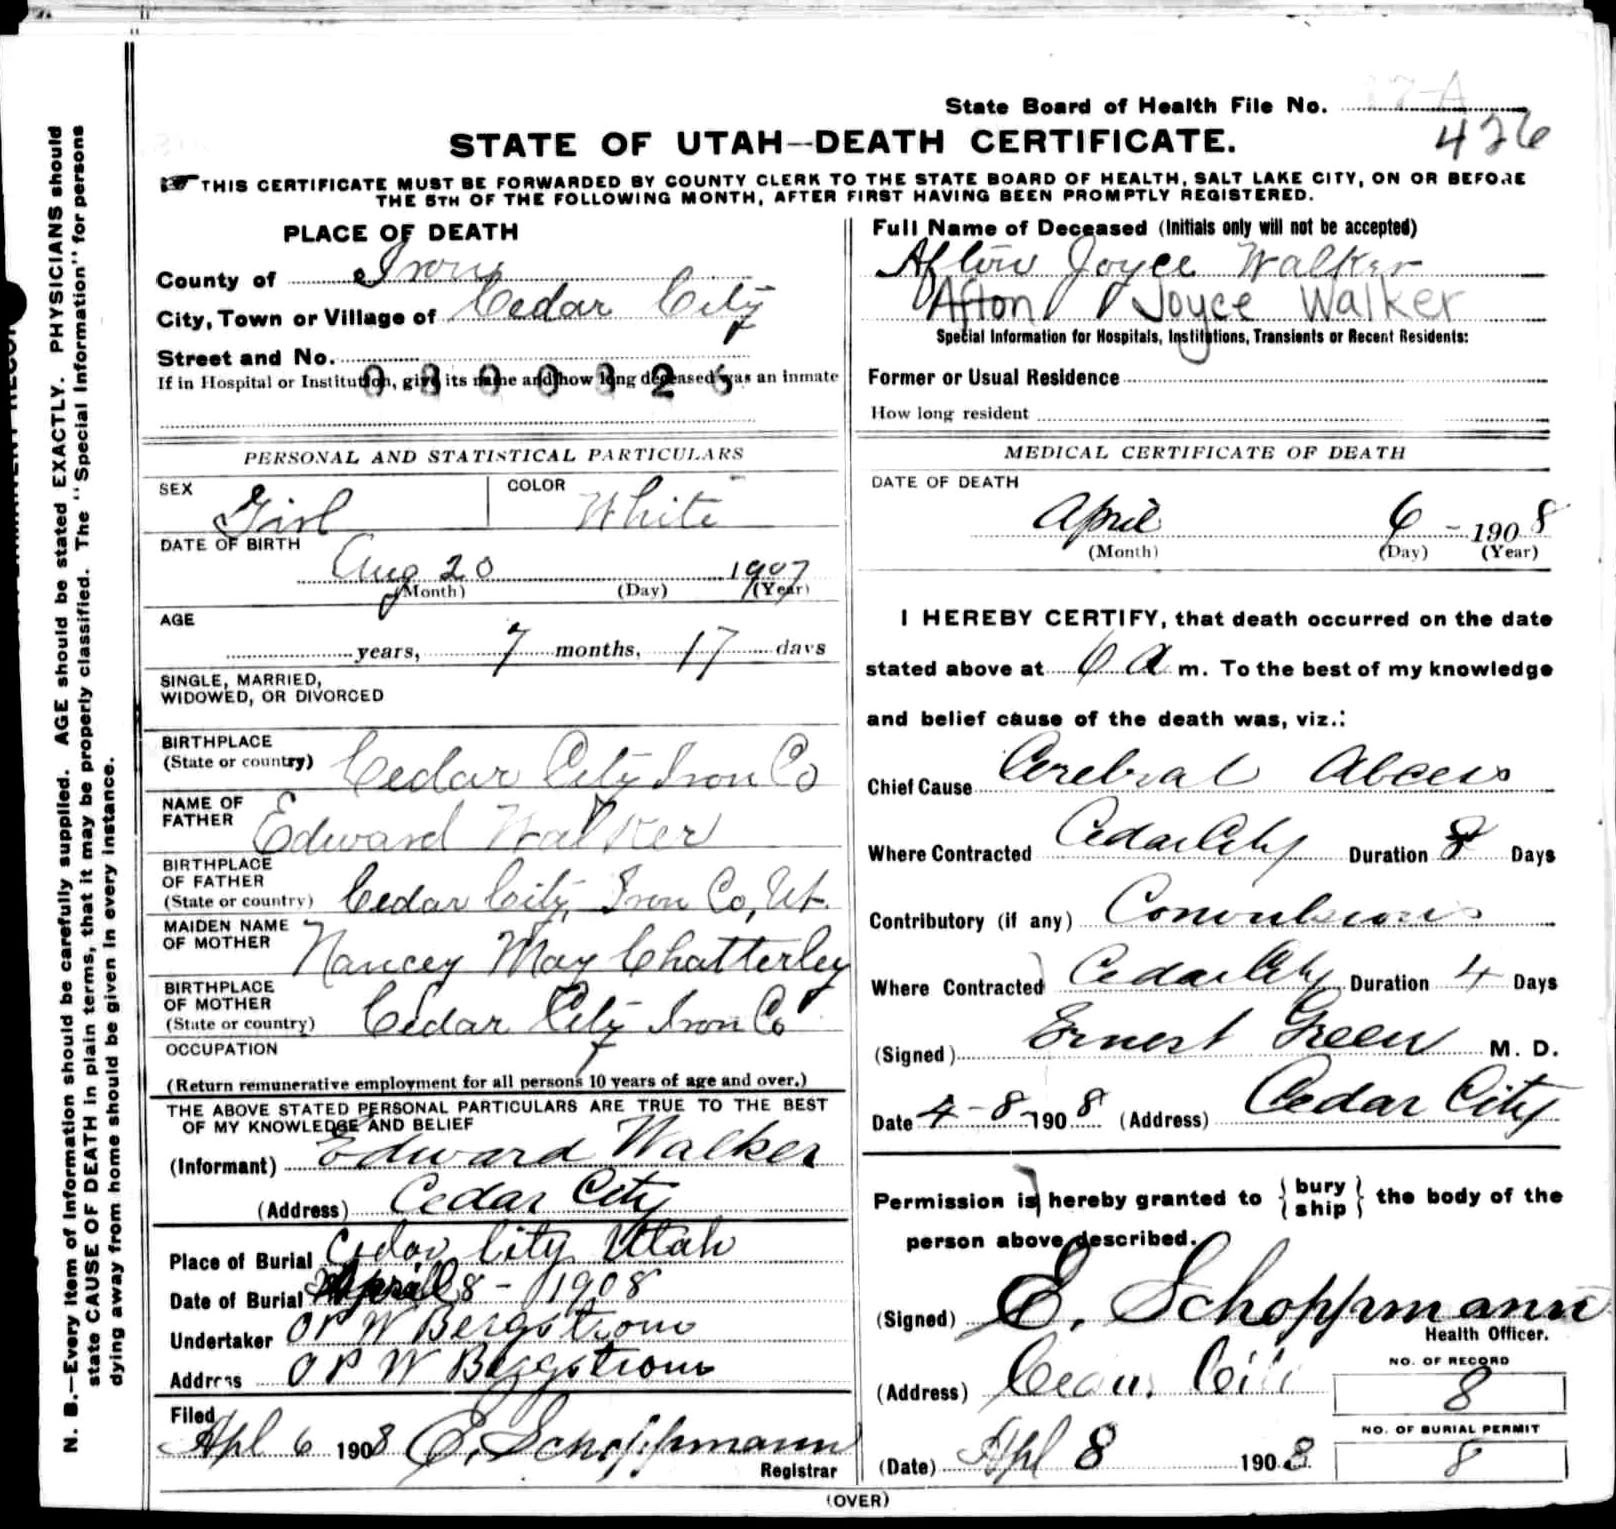 State Board of Health File No. 17-A
426
STATE OF UTAH--DEATH CERTIFICATE.
THIS CERTIFICATE MUST BE FORWARDED BY COUNTY CLERK TO THE STATE BOARD OF HEALTH, SALT LAKE CITY, ON OR BEFORE
THE 5TH OF THE FOLLOWING MONTH, AFTER FIRST HAVING BEEN PROMPTLY REGISTERED.
N. B.—Every item of information should be carefully supplied. AGE should be stated EXACTLY. PHYSICIANS should
state CAUSE OF DEATH in plain terms, that it may be properly classified. The "Special Information" for persons
dying away from home should be given in every instance.
PLACE OF DEATH
County of Iron
City, Town or Village of Cedar City
Street and No.
If in Hospital or Institution, give its name and how long deceased was an inmate
PERSONAL AND STATISTICAL PARTICULARS
SEX Girl COLOR White
DATE OF BIRTH
Aug 20 1907
(Month) (Day) (Year)
AGE
years, 7 months, 17 days
SINGLE, MARRIED,
WIDOWED, OR DIVORCED
BIRTHPLACE
(State or country) Cedar City Iron Co
NAME OF
FATHER Edward Walker
BIRTHPLACE
OF FATHER
(State or country) Cedar City, Iron Co, Ut.
MAIDEN NAME
OF MOTHER Nancey May Chatterley
BIRTHPLACE
OF MOTHER
(State or country) Cedar City Iron Co
OCCUPATION
(Return remunerative employment for all persons 10 years of age and over.)
THE ABOVE STATED PERSONAL PARTICULARS ARE TRUE TO THE BEST
OF MY KNOWLEDGE AND BELIEF
(Informant) Edward Walker
(Address) Cedar City
Place of Burial Cedar City Utah
Date of Burial April 8 - 1908
Undertaker O P W Bergstrom
Address O P W Bergstrom
Filed
Apl 6 1908 E. Schoppmann
Registrar
Full Name of Deceased (Initials only will not be accepted)
Afton Joyce Walker
Afton Joyce Walker
Special Information for Hospitals, Institutions, Transients or Recent Residents:
Former or Usual Residence
How long resident
MEDICAL CERTIFICATE OF DEATH
DATE OF DEATH
April 6 - 1908
(Month) (Day) (Year)
I HEREBY CERTIFY, that death occurred on the date
stated above at 6 a m. To the best of my knowledge
and belief cause of the death was, viz.:
Chief Cause Cerebral Abcess
Where Contracted Cedar City Duration 8 Days
Contributory (if any) Convulsions
Where Contracted Cedar City Duration 4 Days
(Signed) Ernest Green M. D.
Date 4-8-1908 (Address) Cedar City
Permission is hereby granted to { bury ship } the body of the
person above described.
(Signed) E. Schoppmann
Health Officer.
(Address) Cedar City
NO. OF RECORD
8
NO. OF BURIAL PERMIT
8
(Date) Apl 8 1908
(OVER)